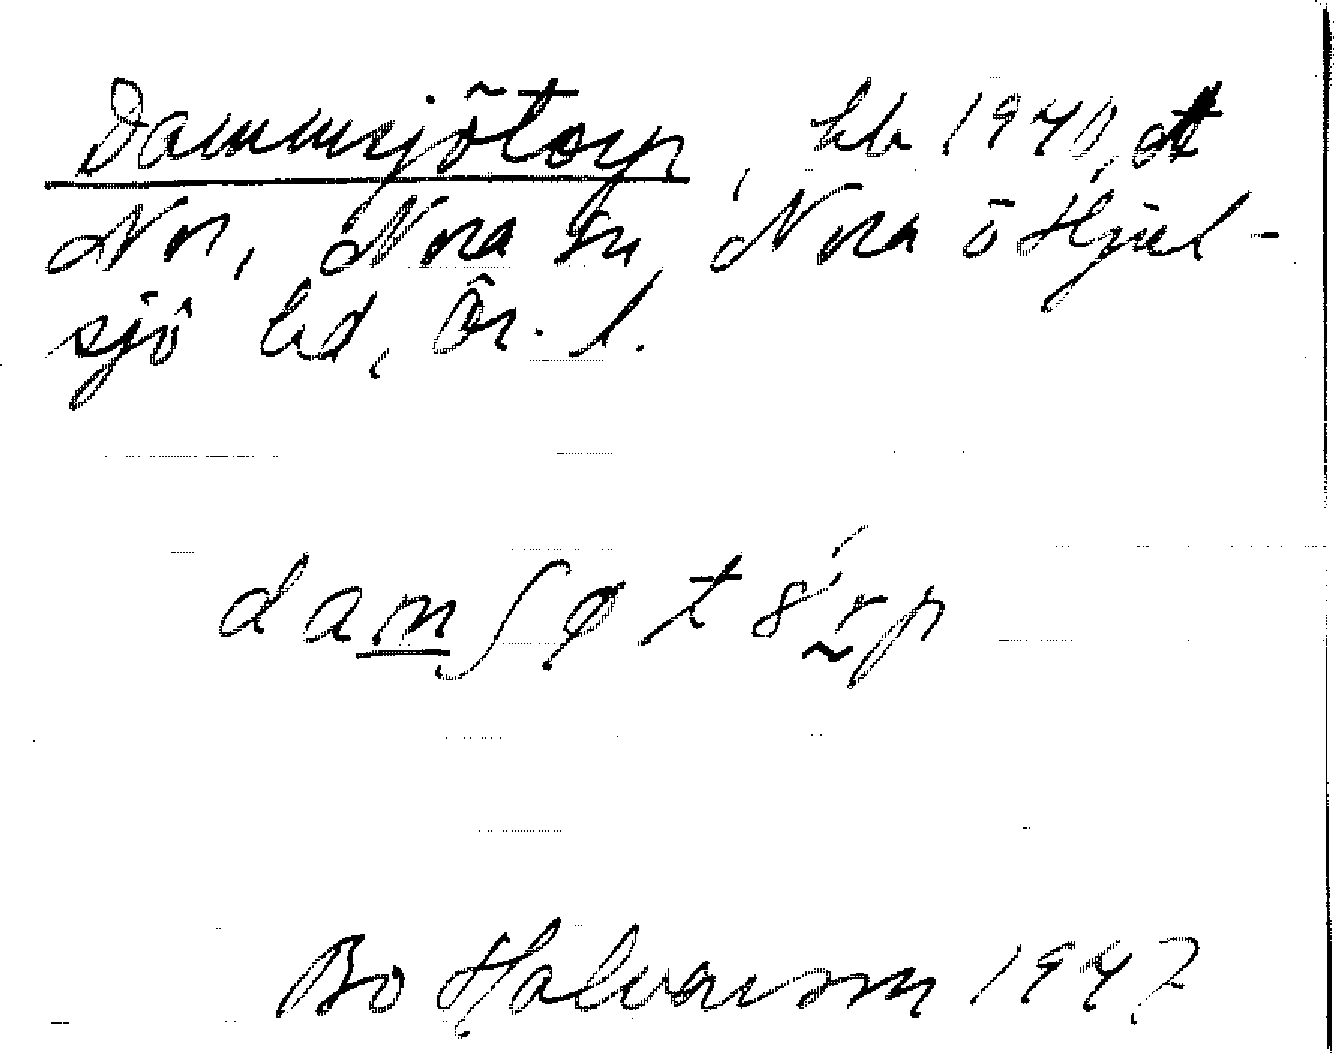 Dammsjötorp, lh 1940, att
Nor, Nora sn, Nora o Hjul-
sjö hd, Ör. l.
damʃøtórp
Bo Halvarson 1947